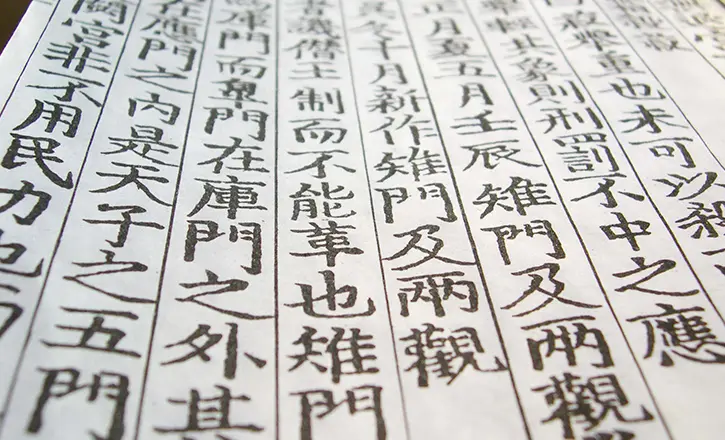 殺舉重也未可以殺
輕其象則刑罰不中之應
正月夏五月壬辰雉門及兩觀
冬十月新作雉門及兩觀
書譏僭王制而不能革也雉門
庫門而皐門在庫門之外其
在應門之內是天子之五門
宮非不用民力也而